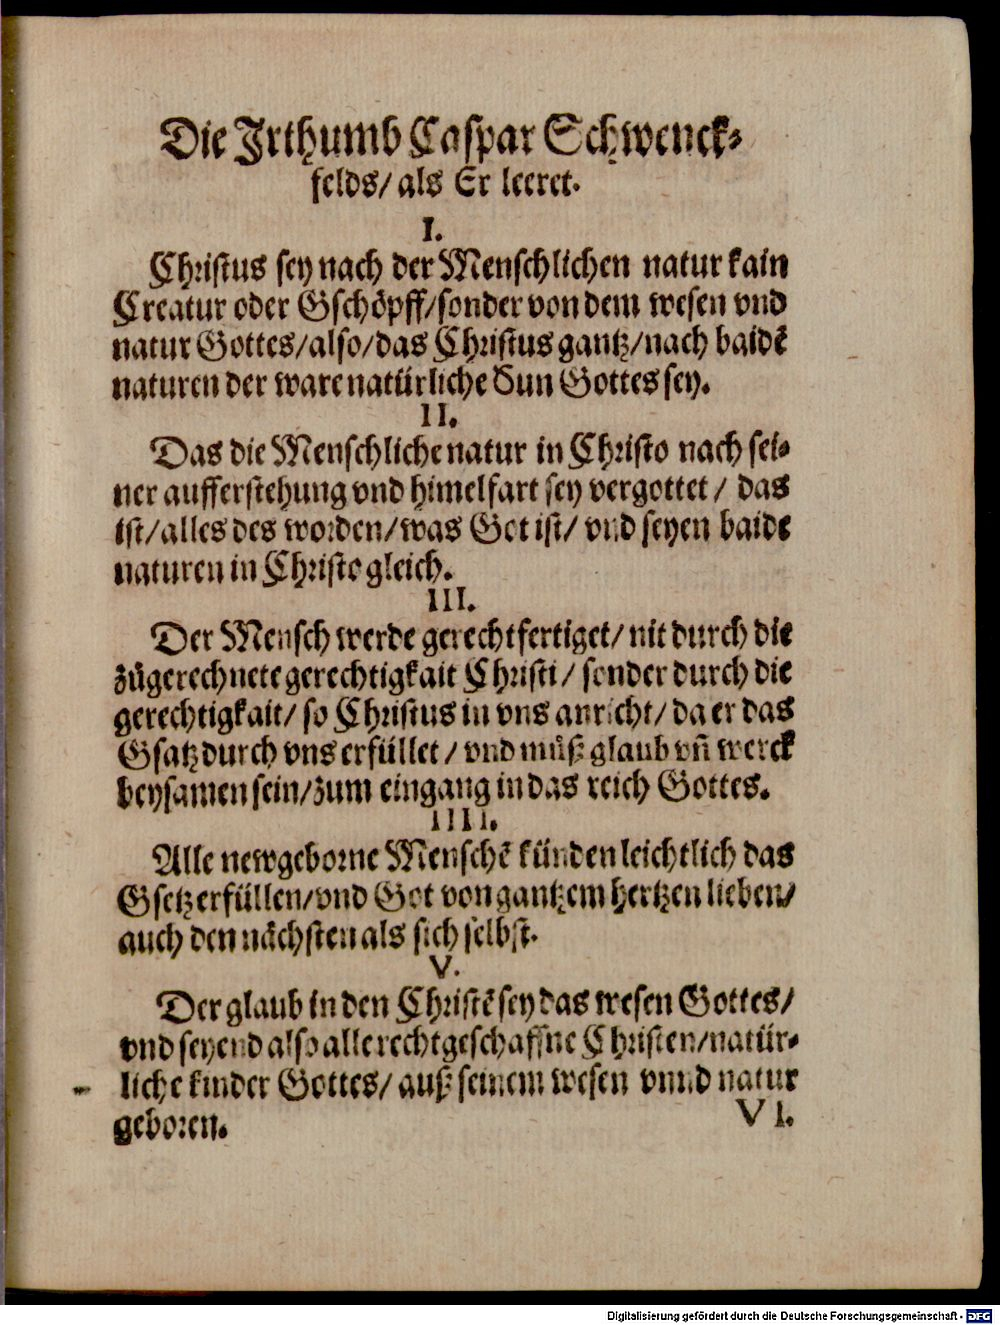 Die Irthumb Caspar Schwenck-
felds/ als Er leeret.
I.
Christus sey nach der Menschlichen natur kain
Creatur oder Gschöpff/ sonder von dem wesen vnd
natur Gottes/ also/ das Christus gantz/ nach baidē
naturen der ware natürliche Sun Gottes sey.
II.
Das die Menschliche natur in Christo nach sei-
ner aufferstehung vnd himelfart sey vergottet / das
ist/ alles des worden/ was Got ist/ vnd seyen baide
naturen in Christo gleich.
III.
Der Mensch werde gerechtfertiget/ nit durch die
zůgerechnete gerechtigkait Christi / sonder durch die
gerechtigkait/ so Christus in vns anricht/ da er das
Gsatz durch vns erfüllet / vnd můß glaub vñ werck
beysamen sein/ zum eingang in das reich Gottes.
IIII.
Alle newgeborne Menschē künden leichtlich das
Gsetz erfüllen/ vnd Got von gantzem hertzen lieben/
auch den nächsten als sich selbst.
V.
Der glaub in den Christē sey das wesen Gottes/
vnd seyend also alle rechtgeschaffne Christen/ natür-
liche kinder Gottes/ auß seinem wesen vnnd natur
geboren.
VI.
Digitalisierung gefördert durch die Deutsche Forschungsgemeinschaft - DFG